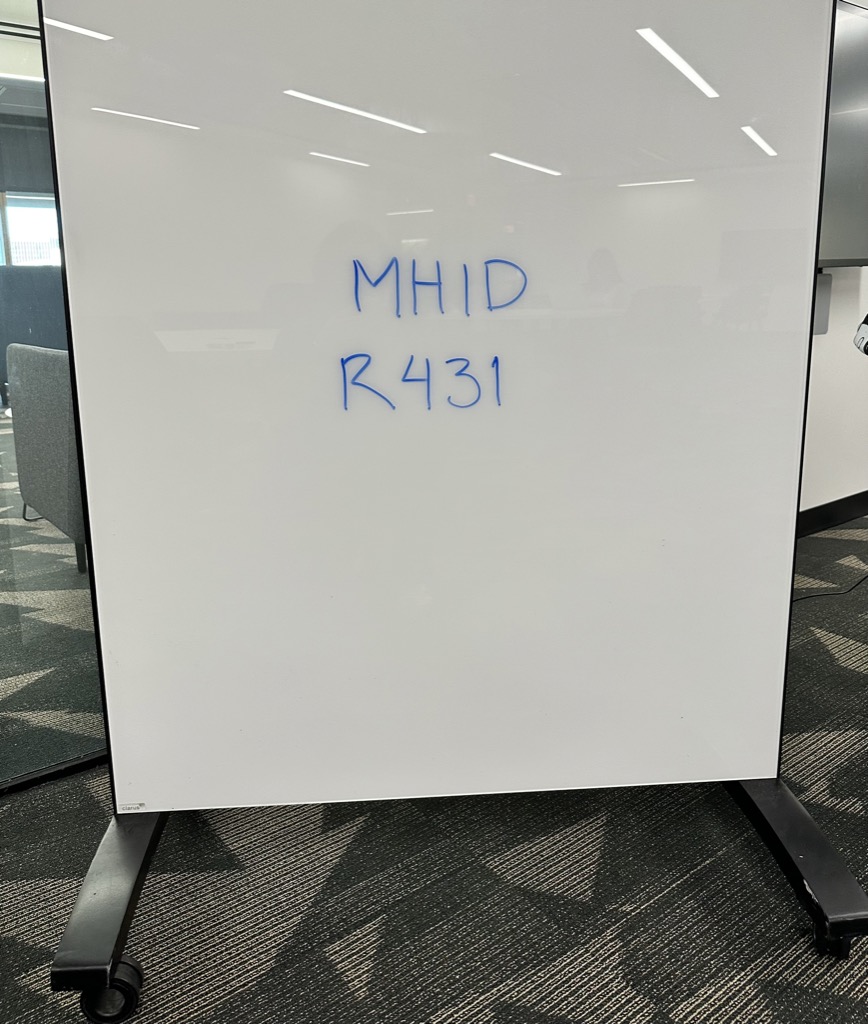 MHID
R431
clarus